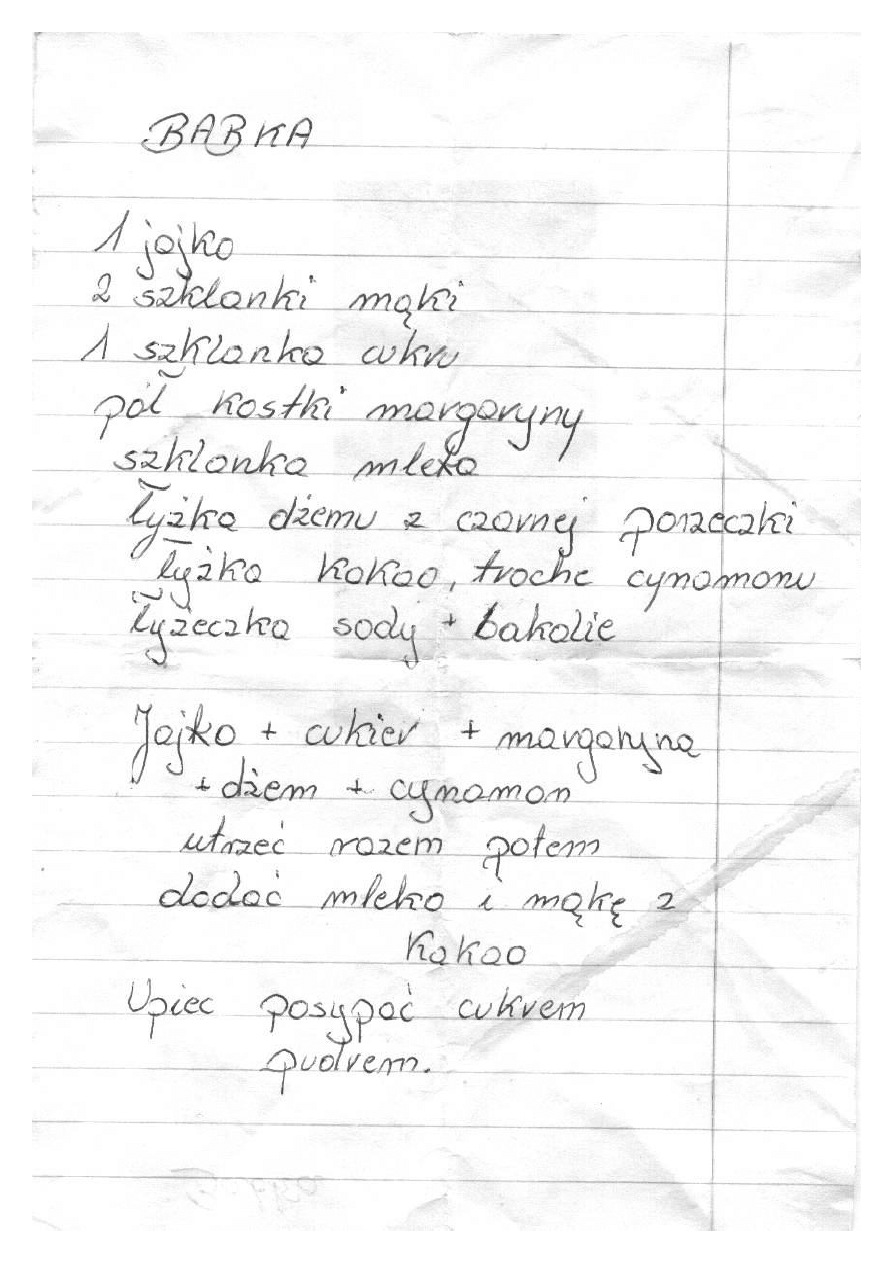 BABKA
1 jajko
2 szklanki mąki
1 szklanka cukru
pół kostki margaryny
szklanka mleka
łyżka dżemu z czarnej porzeczki
łyżka kakao, troche cynamonu
łyżeczka sody + bakalie
Jajko + cukier + margaryna
+ dżem + cynamon
utrzeć razem potem
dodać mleko i mąkę z
kakao
Upiec posypać cukrem
pudrem.